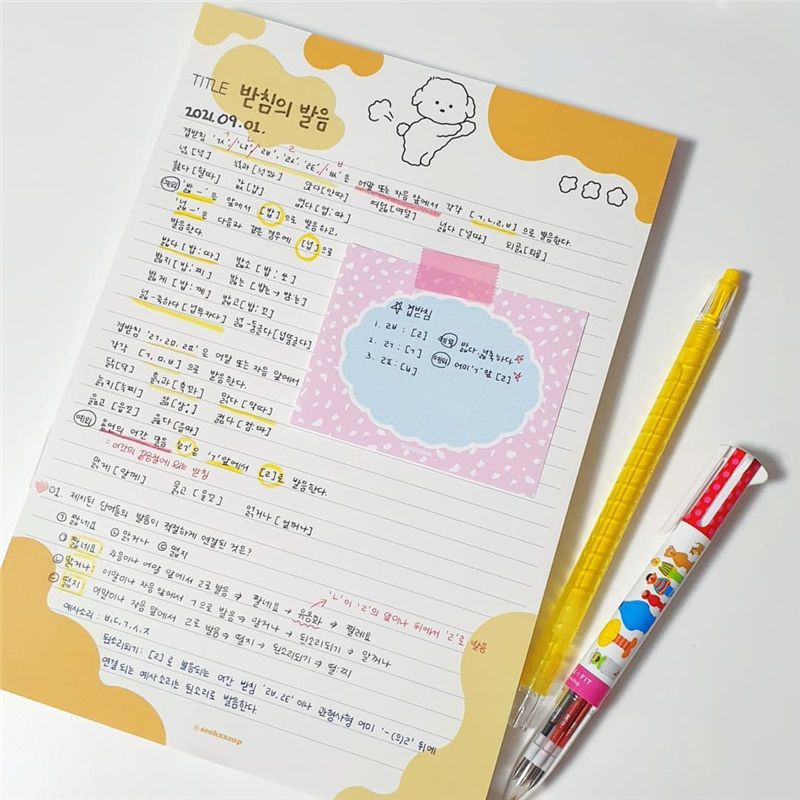 TITLE 받침의 발음
2021.09.01.
겹받침 'ㄳ', 'ㄵ', 'ㄼ', 'ㄽ', 'ㄾ', 'ㅄ'은 어말 또는 자음 앞에서 각각 [ㄱ,ㄴ,ㄹ,ㅂ]으로 발음한다.
ㄱ ㄴ ㄹ ㅂ
넋[넉] 넋과[넉꽈] 앉다[안따] 여덟[여덜] 넓다[널따] 외곬[외골]
핥다[할따] 값[갑] 없다[업:따]
예외 '밟-'은 앞에서 [밥]으로 발음하고,
'넓-'은 다음과 같은 경우에 [넙]으로
발음한다.
밟다[밥:따] 밟소[밥:쏘]
밟지[밥:찌] 밟는[밥:는→밤:는]
밟게[밥:께] 밟고[밥:꼬]
넓-죽하다[넙쭈카다] 넓-둥글다[넙뚱글다]
☆ 겹받침
1. ㄼ : [ㄹ] 예외 밟다, 넓죽하다 ☆
2. ㄺ : [ㄱ] 예외 어미 'ㄱ' 앞 [ㄹ] ☆
3. ㄿ : [ㅂ]
겹받침 'ㄺ, ㄻ, ㄿ'은 어말 또는 자음 앞에서
각각 [ㄱ,ㅁ,ㅂ]으로 발음한다.
닭[닥] 흙과[흑꽈] 맑다[막따]
늙지[늑찌] 삶[삼:] 젊다[점:따]
읊고[읍꼬] 읊다[읍따]
예외 용언의 어간 말음 'ㄺ'은 'ㄱ' 앞에서 [ㄹ]로 발음한다.
= 어간의 끝음절에 있는 받침
맑게[말께] 묽고[물꼬] 얽거나[얼꺼나]
01. 제시된 단어들의 발음이 적절하게 연결된 것은?
㉠ 짧네요 ㉡ 맑거나 ㉢ 떫지
㉠ 짧네요: 자음이나 어말 앞에서 ㄹ로 발음 ⇒ 짤네요 → 유음화 ⇒ 짤레요
'ㄴ'이 'ㄹ'의 앞이나 뒤에서 'ㄹ'로 발음
㉡ 맑거나: 어말이나 자음 앞에서 ㄱ으로 발음 ⇒ 말거나 → 된소리되기 ⇒ 말꺼나
㉢ 떫지: 어말이나 자음 앞에서 ㄹ로 발음 ⇒ 떨지 → 된소리되기 ⇒ 떨:찌
예사소리: ㅂ,ㄷ,ㄱ,ㅅ,ㅈ
된소리되기: [ㄹ]로 발음되는 어간 받침 'ㄼ,ㄾ'이나 관형사형 어미 '-(으)ㄹ' 뒤에
연결되는 예사소리는 된소리로 발음한다.
@seohxxsup
FIT